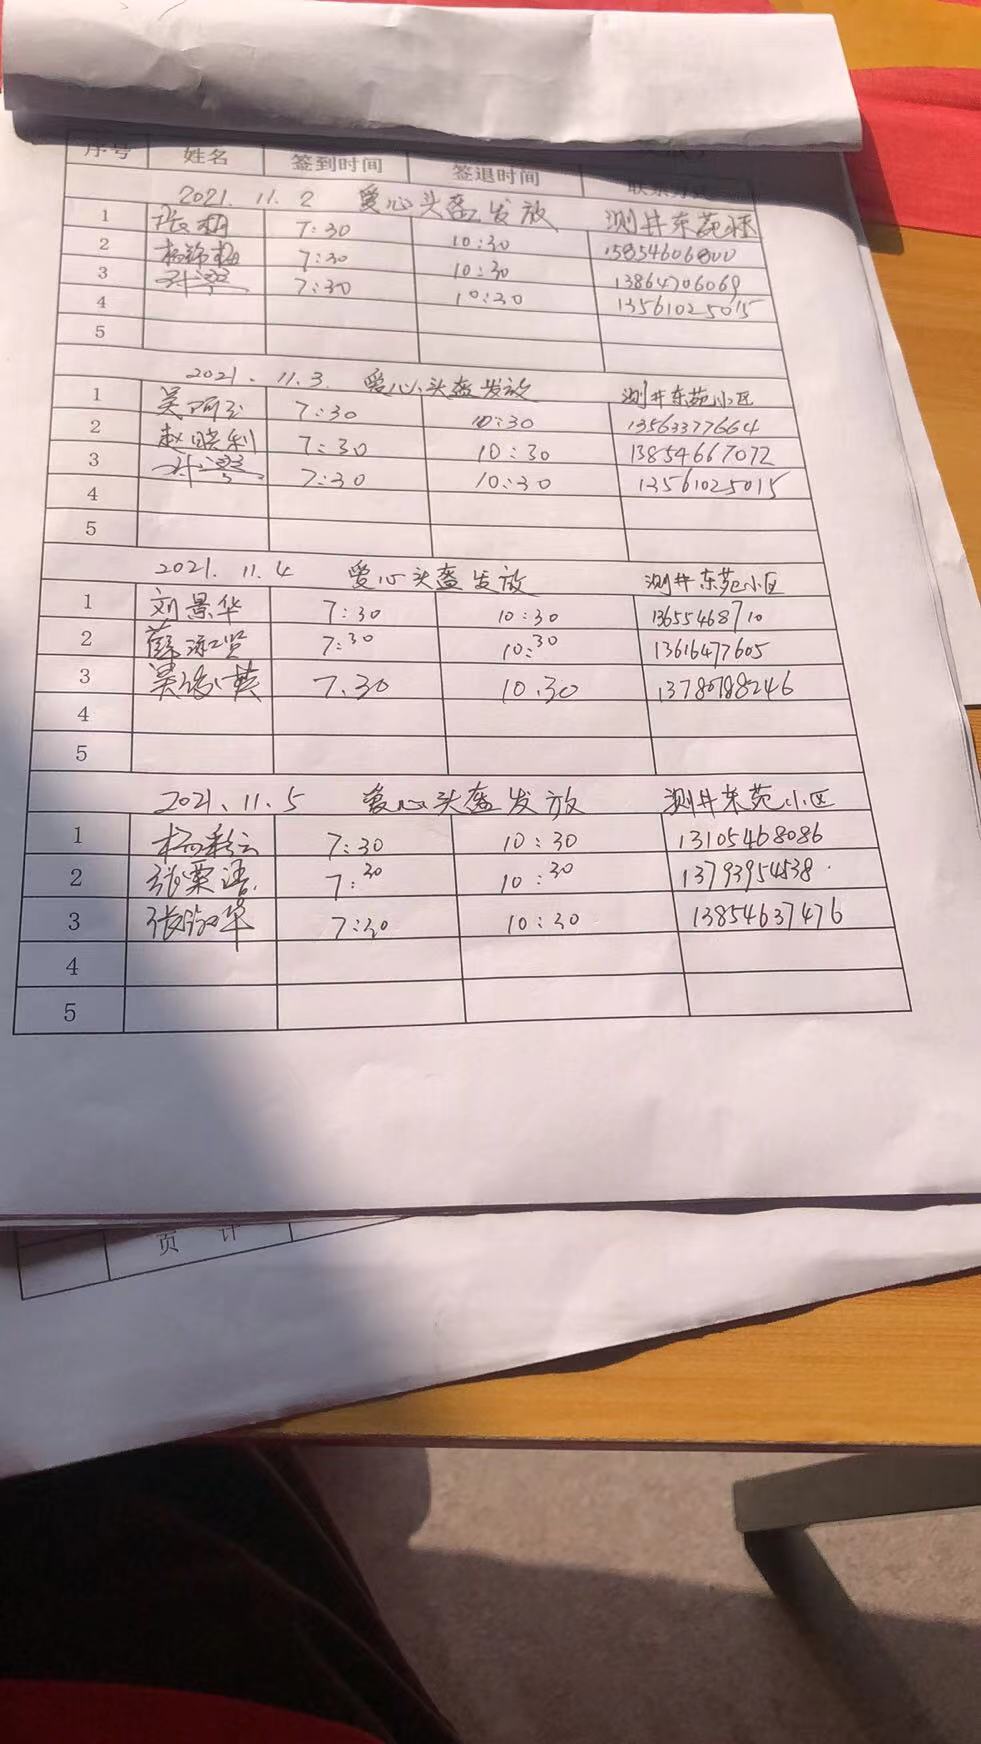 序号 姓名 签到时间 签退时间
2021. 11. 2 爱心头盔发放 测井东苑小区
1 7:30 10:30 15854606800
2 杨锦梅 7:30 10:30 13864706069
3 7:30 10:30 13561025015
4
5
2021. 11.3. 爱心头盔发放 测井东苑小区
1 7:30 10:30 13563377664
2 赵晓利 7:30 10:30 13854667072
3 7:30 10:30 13561025015
4
5
2021. 11. 4 爱心头盔发放 测井东苑小区
1 刘景华 7:30 10:30 13655468710
2 7:30 10:30 13616477605
3 7.30 10.30
4
5
2021. 11. 5 爱心头盔发放 测井东苑小区
1 杨彩云 7:30 10:30 13105468086
2 7:30 10:30 13793954538
3 7:30 10:30 13854637476
4
5
页 计